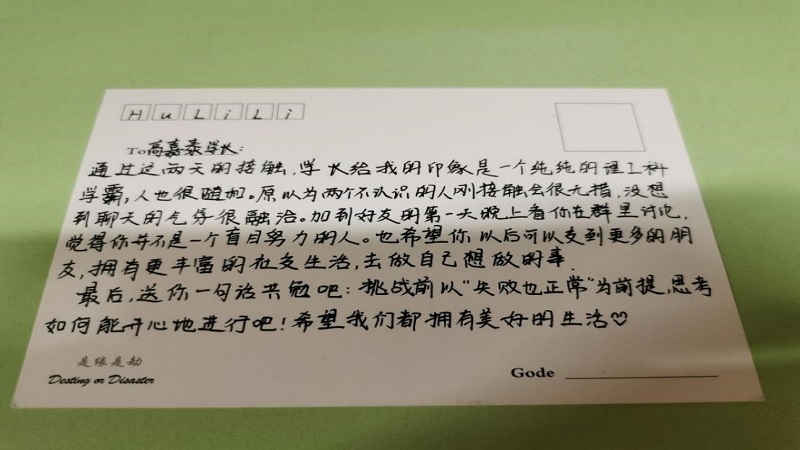 HuLiLi
To高嘉泰学长:
通过这两天的接触,学长给我的印象是一个纯纯的理工科
学霸,人也很随和。原以为两个不认识的人刚接触会很尢指,没想
到聊天的气氛很融洽。加到好友的第一天晚上看你在群里讨论,
觉得你并不是一个盲目努力的人。也希望你以后可以交到更多的朋
友,拥有更丰富的社交生活,去做自己想做的事.
最后,送你一句话共勉吧:挑战前以"失败也正常"为前提,思考
如何能开心地进行吧!希望我们都拥有美好的生活♡
是缘是劫
Desting or Disaster
Gode